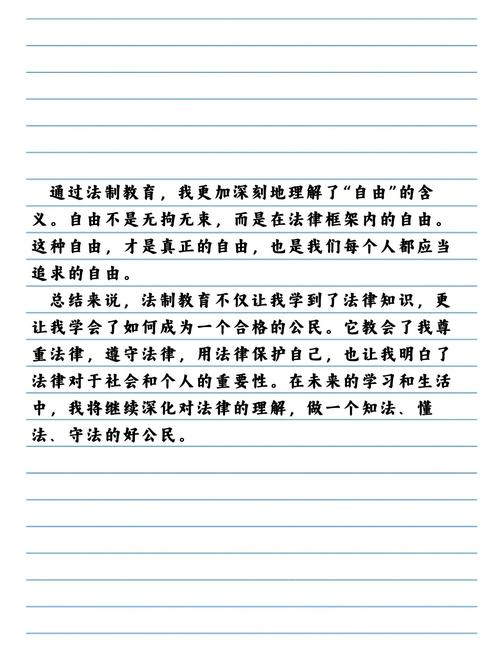 通过法制教育，我更加深刻地理解了“自由”的含
义。自由不是无拘无束，而是在法律框架内的自由。
这种自由，才是真正的自由，也是我们每个人都应当
追求的自由。
总结来说，法制教育不仅让我学到了法律知识，更
让我学会了如何成为一个合格的公民。它教会了我尊
重法律，遵守法律，用法律保护自己，也让我明白了
法律对于社会和个人的重要性。在未来的学习和生活
中，我将继续深化对法律的理解，做一个知法、懂
法、守法的好公民。